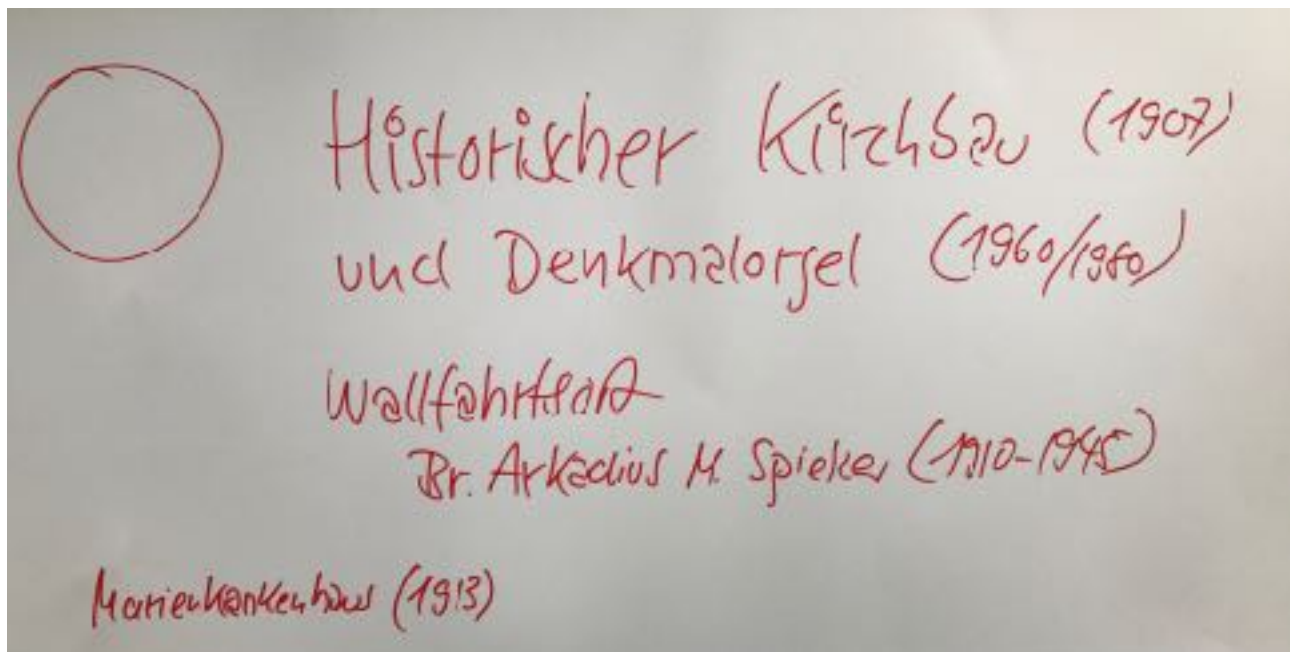 Historischer Kirchbau (1907)
und Denkmalorgel (1960/1980)
Wallfahrtsort
Br. Arkadius M. Spieker (1910-1945)
Marienkrankenhaus (1913)